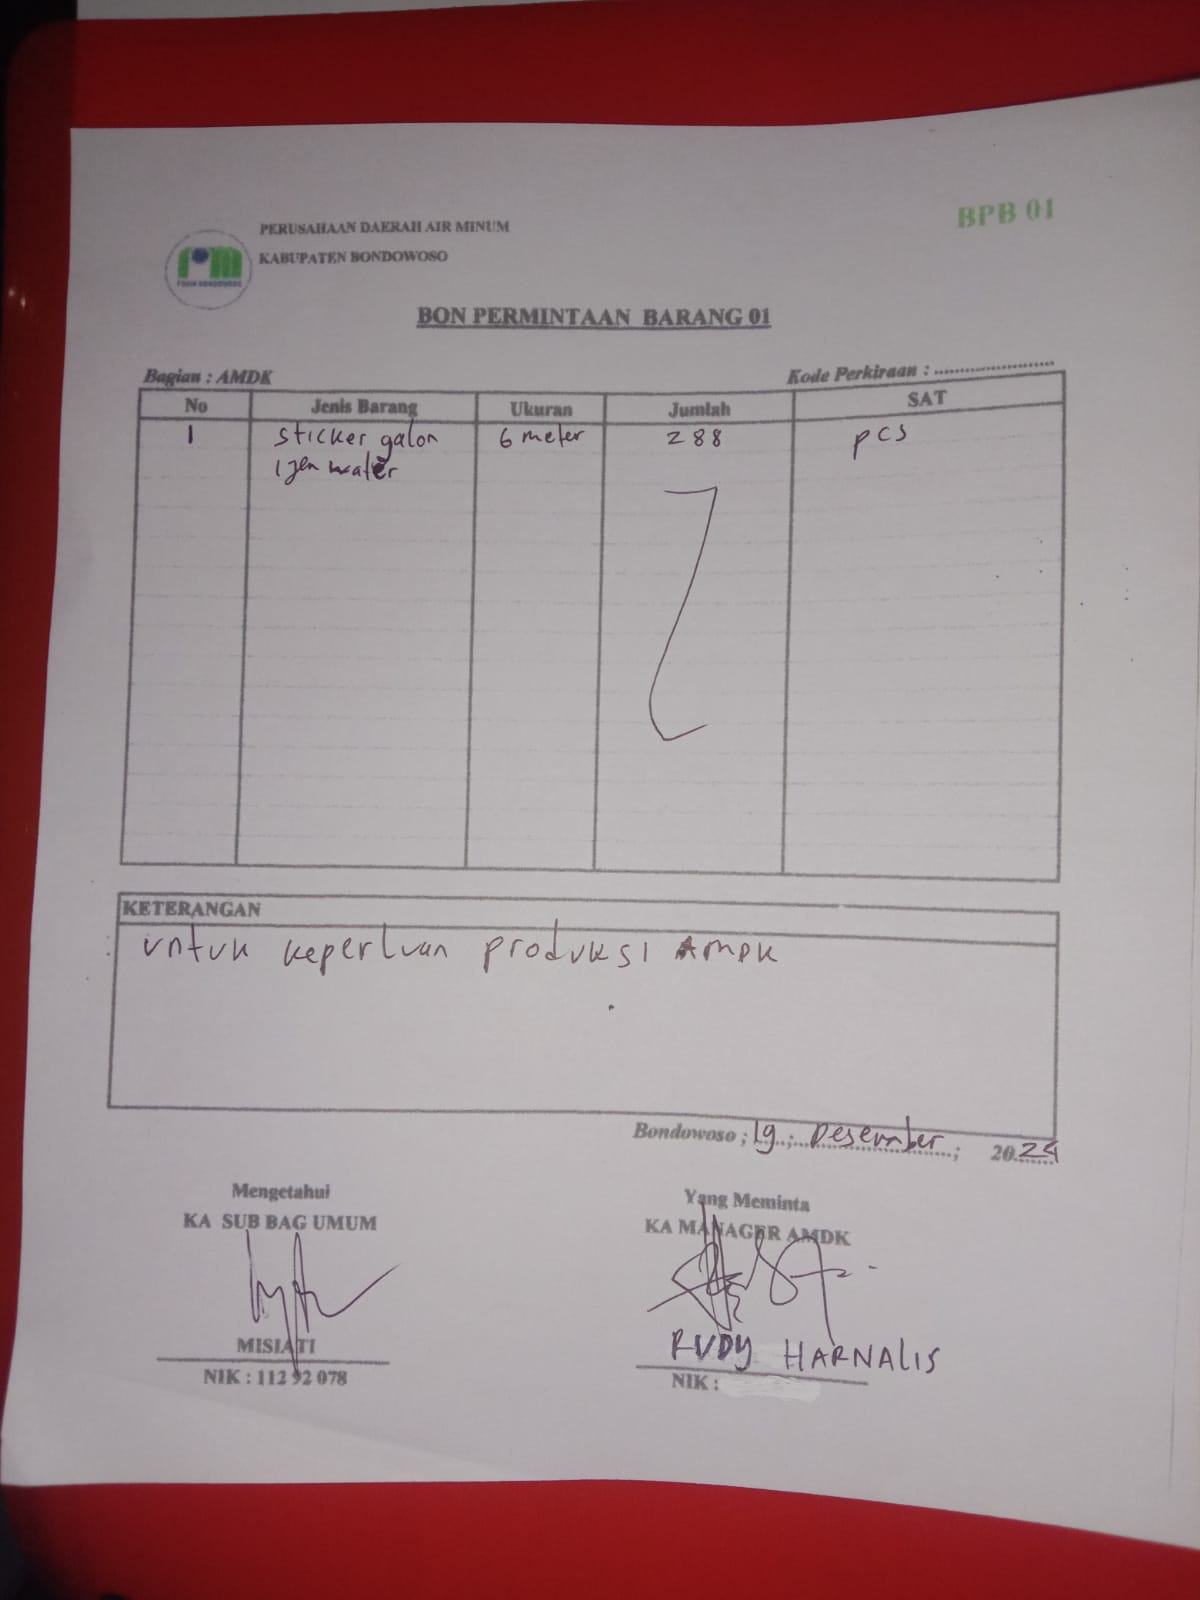 BPB 01
PERUSAHAAN DAERAH AIR MINUM
KABUPATEN BONDOWOSO
BON PERMINTAAN BARANG 01
Bagian : AMDK
Kode Perkiraan : ........................
No Jenis Barang Ukuran Jumlah SAT
1 sticker galon 6 meter 288 pcs
Ijen water
KETERANGAN
untuk keperluan produksi AMDK
Bondowoso ; 19 ; Desember ; 2024
Mengetahui
KA SUB BAG UMUM
MISIATI
NIK : 112 92 078
Yang Meminta
KA MANAGER AMDK
RUDY HARNALIS
NIK :